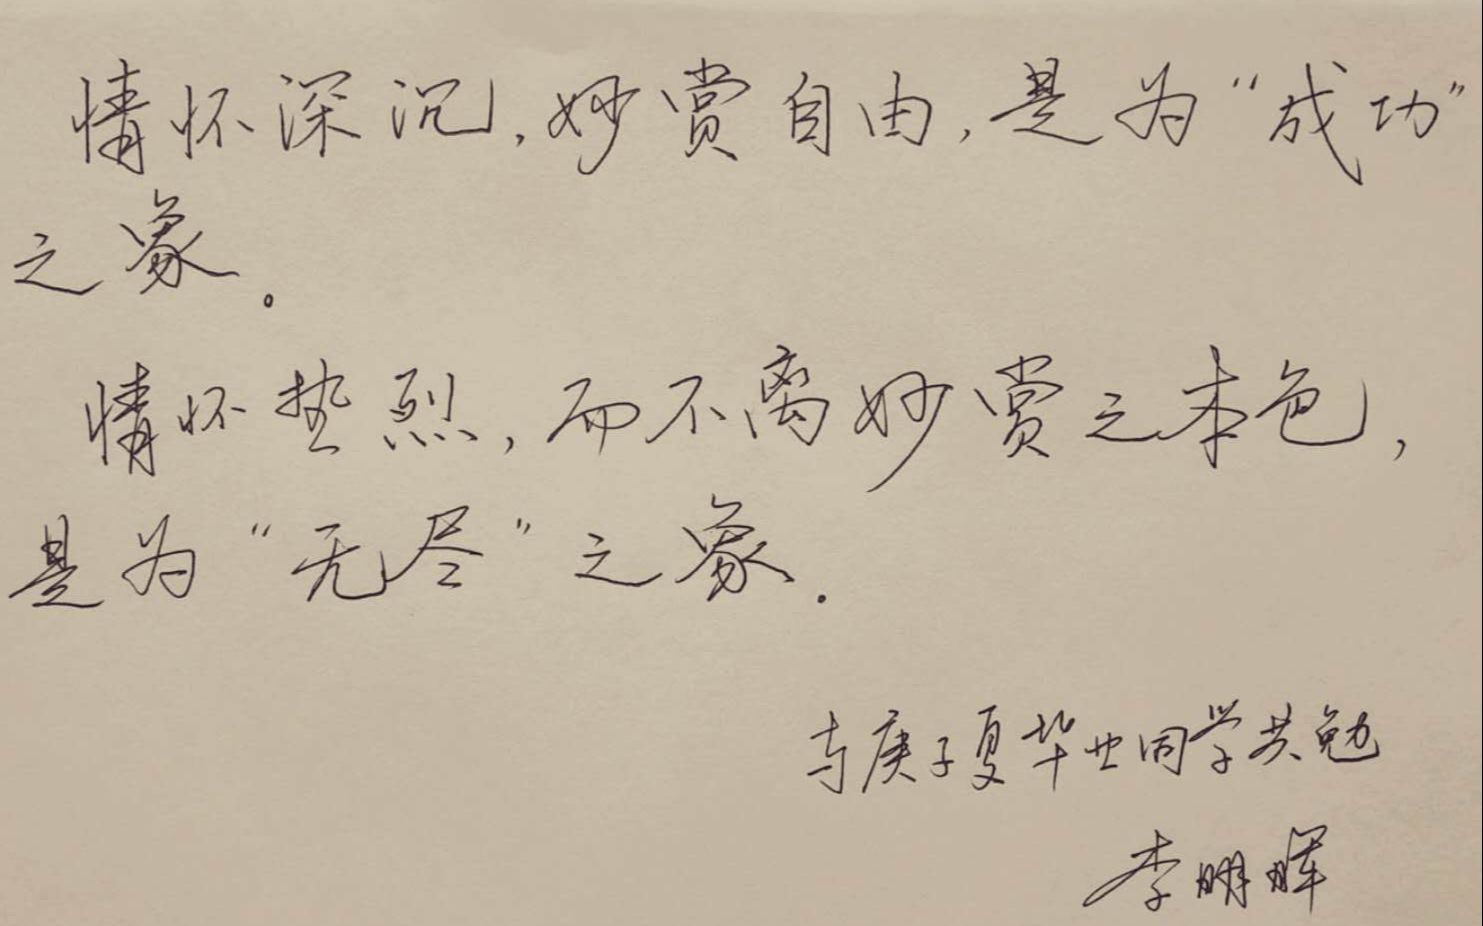 情怀深沉，妙赏自由，是为“成功”
之象。
情怀垫烈，而不离妙赏之本色，
是为“无尽”之象．
与庚子夏毕业同学共勉
李明晖